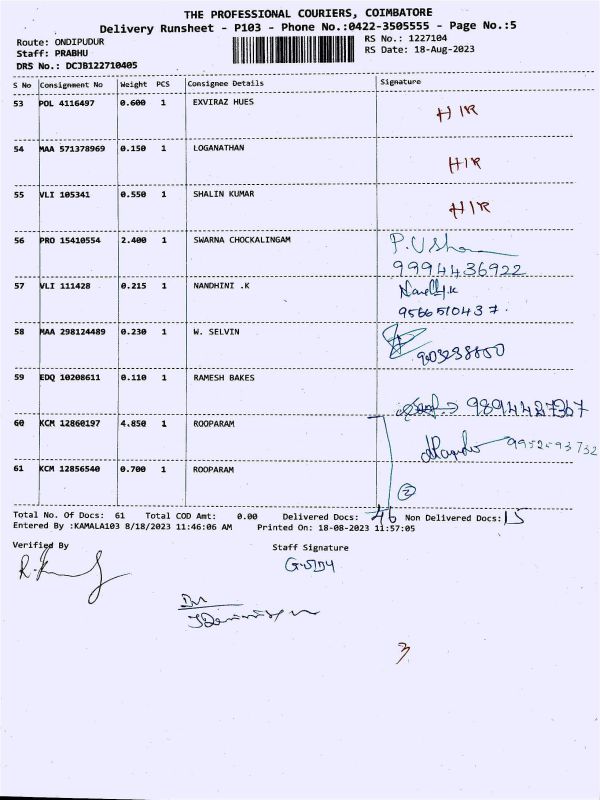 THE PROFESSIONAL COURIERS, COIMBATORE
Delivery Runsheet - P103 - Phone No.:0422-3505555 - Page No.:5
Route: ONDIPUDUR
RS No.: 1227104
Staff: PRABHU
RS Date: 18-Aug-2023
DRS No.: DCJB122710405
S No Consignment No Weight PCS Consignee Details Signature
53 POL 4116497 0.600 1 EXVIRAZ HUES HIR
54 MAA 571378969 0.150 1 LOGANATHAN HIR
55 VLI 105341 0.550 1 SHALIN KUMAR HIR
56 PRO 15410554 2.400 1 SWARNA CHOCKALINGAM P.Usha
9994436922
57 VLI 111428 0.215 1 NANDHINI .K
9566510437.
58 MAA 298124489 0.230 1 W. SELVIN
59 EDQ 10208611 0.110 1 RAMESH BAKES
60 KCM 12860197 4.850 1 ROOPARAM
9952593732
61 KCM 12856540 0.700 1 ROOPARAM
2
Total No. Of Docs: 61 Total COD Amt: 0.00 Delivered Docs: 46 Non Delivered Docs: 15
Entered By :KAMALA103 8/18/2023 11:46:06 AM Printed On: 18-08-2023 11:57:05
Verified By Staff Signature
3